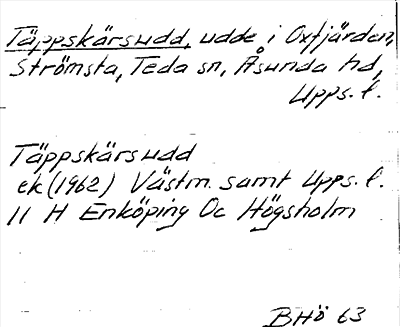 Täppskärsudd, udde i Oxfjärden,
Strömsta, Teda sn, Åsunda hd,
Upps. l.
Täppskärsudd
ek (1962) Västm. samt Upps. l.
11 H Enköping Oc Högsholm
BHö 63